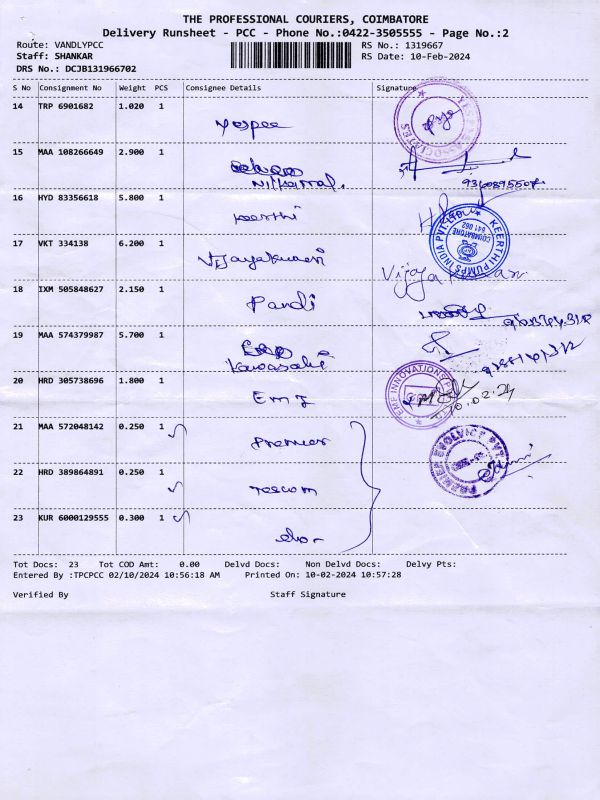 THE PROFESSIONAL COURIERS, COIMBATORE
Delivery Runsheet - PCC - Phone No.:0422-3505555 - Page No.:2
Route: VANDLYPCC RS No.: 1319667
Staff: SHANKAR RS Date: 10-Feb-2024
DRS No.: DCJB131966702
S No Consignment No Weight PCS Consignee Details Signature
14 TRP 6901682 1.020 1
15 MAA 108266649 2.900 1
16 HYD 83356618 5.800 1 Keerthi
KEERTHI PUMPS INDIA PVT LTD COIMBATORE 641 062
17 VKT 334138 6.200 1 Vijayakumari
18 IXM 505848627 2.150 1 Pandi
19 MAA 574379987 5.700 1
Kawasaki
20 HRD 305738696 1.800 1 EMF
EMF INNOVATIONS 10.02.24
21 MAA 572048142 0.250 1 Premier
PREMIER EVOLVICS PVT
22 HRD 389864891 0.250 1 Texcom
23 KUR 6000129555 0.300 1
Tot Docs: 23 Tot COD Amt: 0.00 Delvd Docs: Non Delvd Docs: Delvy Pts:
Entered By :TPCPCC 02/10/2024 10:56:18 AM Printed On: 10-02-2024 10:57:28
Verified By Staff Signature